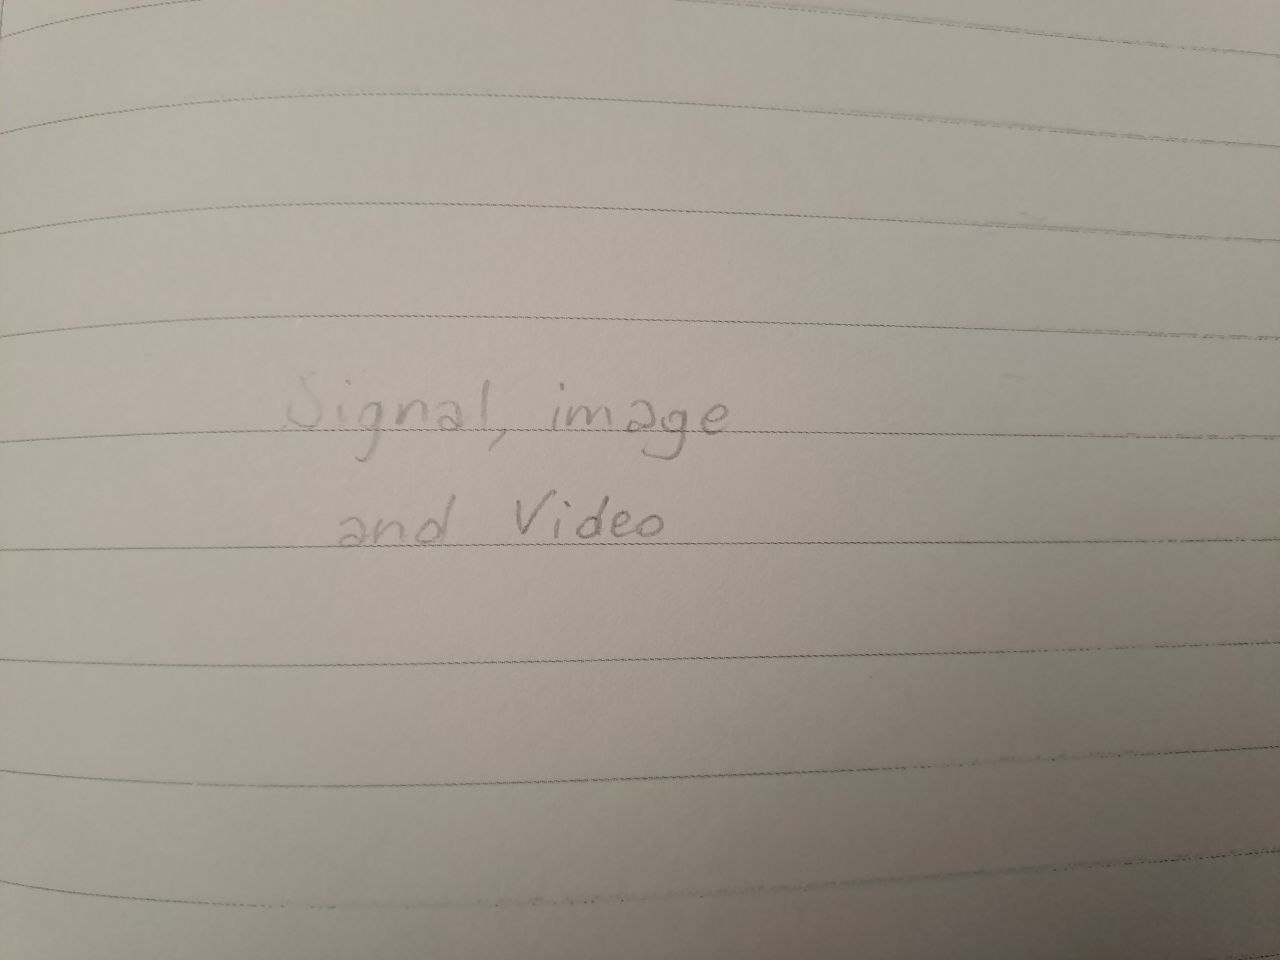 Signal, image
and Video